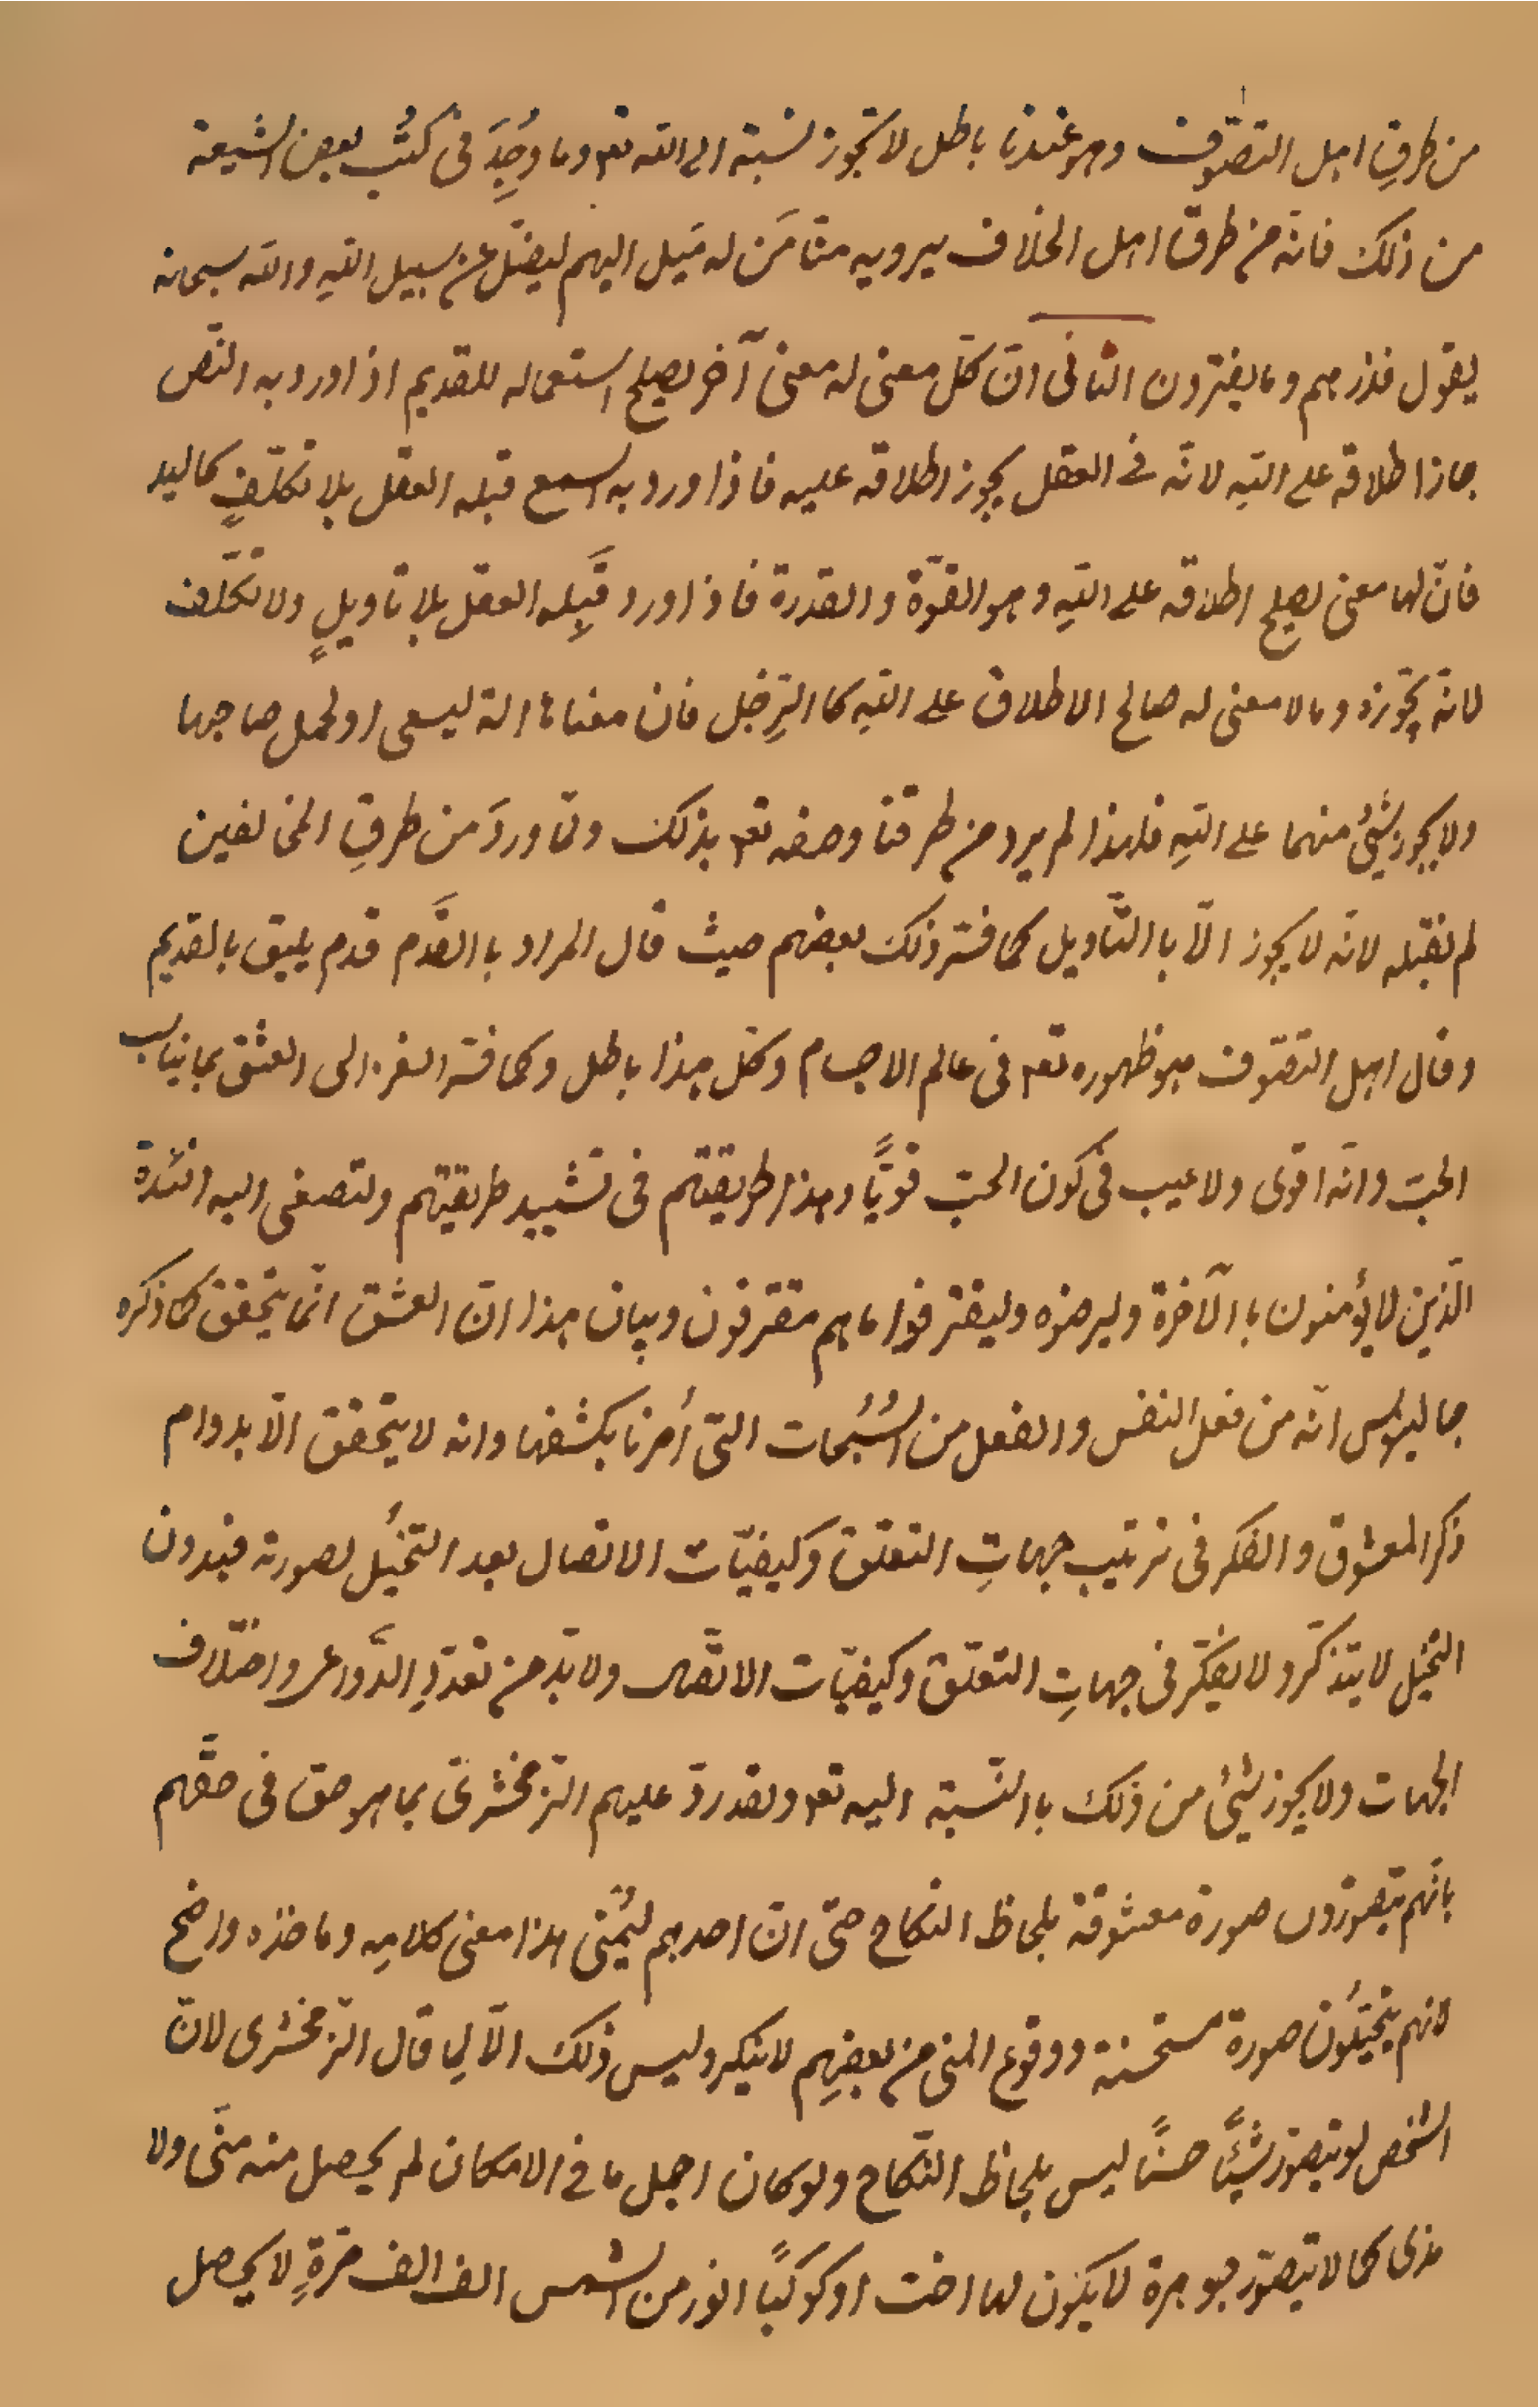 من طرقِ اهل التصّوف وهو عندنا باطل لا تجوز نسبته الى الله تعه وما وُجِدَ فى كتُب بعض الشيعة
من ذلك فانّه من طرق اهل الخلاف يرويه منّا مَن له مَيل اليهم ليضلّ عن سبيل اللهِ والله سبحانه
يقول فذرهم وما يفترون الثانى انّ كلّ معنى له معنىً آخر يصلح استعماله للقديم اذا ورد به النّص
جاز اطلاقه على اللهِ لانّه فى العقل يجوز اطلاقه عليه فاذا ورد به السمع قبله العقل بلا تكلّفٍ كاليد
فانّ لها معنى يصلح اطلاقه على اللهِ وهو القوّة والقدرة فاذا ورد قَبِله العقل بلا تاويلٍ ولا تكلّف
لانّه يجّوزه وما لا معنى له صالح الاطلاق على الله كا الرِّجل فان معناها الة ليسعى او لحمل صاحبها
ولا يجوز شئ منهما على اللهِ فلهذا لم يرد من طرقنا وصفه تعه بذلك ولمّا وردَ من طرقِ المخالفين
لم نقبله لانّه لا يجوز الّا با التَّاويل كما فسّر ذلك بعضهم حيث قال المراد با القَدم قدم يليق بالقديم
وقال اهل التصّوف هو ظهوره تعه فى عالم الاجسام وكلّ هذا باطل وكما فسّر الغزالى العشق بما يناسب
الحبّ وانّه اقوى ولا عيب فى كون الحبّ قويًّا وهذا طريقتهم فى تشييد طريقتهم ولتصغى اليه افئدة
الّذين لا يؤمنون با الآخرة وليرضوه وليقترفوا ما هم مقترفون وبيان هذا انّ العشق انّما يتحقق كما ذكره
جالينوس انّه من فعل النفس والفعل من السُّبُحات التّى أُمرنا بكشفها وانه لا يتحقق الّا بدوام
ذكر المعشوق والفكر فى ترتيب جهاتِ التعلّق وكيفيّات الاتصال بعد التخيُّل لصورته فبدون
التخيّل لا يتذكّر ولا يفكّر فى جهاتِ التعلّق وكيفيّات الاتّصال ولا بدّ من تعدّدِ الدَّواعى واختلاف
الجهات ولا يجوز شئ من ذلك با النّسبة اليه تعه ولقد ردّ عليهم الزّمخشرىّ بما هو حق فى حقّهم
بانّهم يتصوّرون صورة معشوقة بلحاظ النكاح حتّى انّ احدهم ليُمنى هذا معنى كلامِه وماخذه واضح
لانهم يتخيّلُون صورة مستحسنة ووقوع المنى من بعضِهم لا ينكر وليس ذلك الّا لِما قال الزّمخشرى لانّ
الشخص لو يتصوّر شيئًا حسنًا ليس بلحاظ النّكاح ولو كان اجمل ما فى الامكان لم يحصل منه منَى ولا
مذى كما لا يتصوّر جوهرة لا يكون لها اخت او كوكبًا انور من الشمس الف الف مرّةٍ لا يحصل